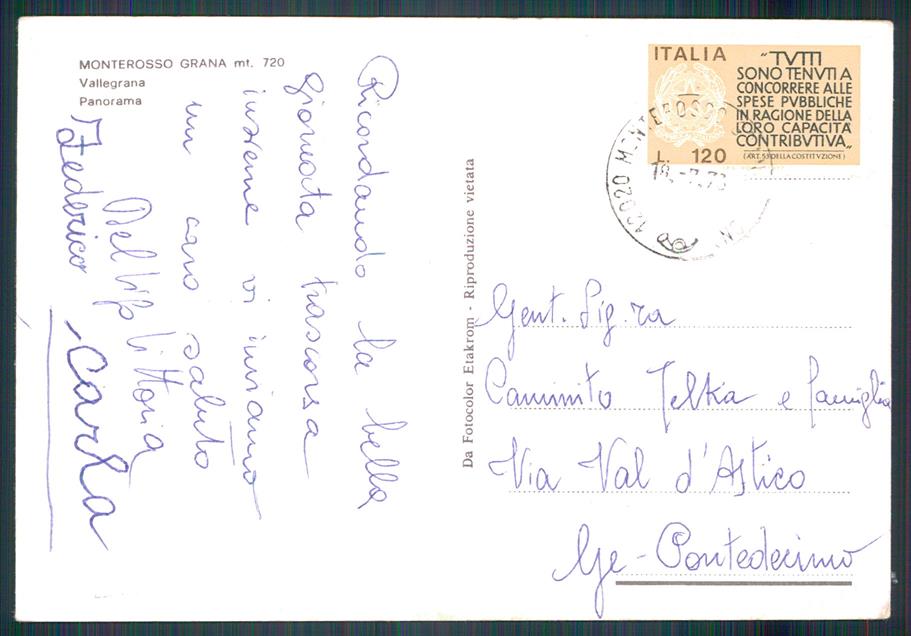 MONTEROSSO GRANA mt. 720
Vallegrana
Panorama
Ricordando la bella
giornata trascorsa
insieme vi inviamo
un caro saluto
Vittoria
Federico Carla
Da Fotocolor Etakrom - Riproduzione vietata
ITALIA
"TVTTI
SONO TENVTI A
CONCORRERE ALLE
SPESE PVBBLICHE
IN RAGIONE DELLA
LORO CAPACITÀ
CONTRIBVTIVA"
(ART. 53 DELLA COSTITVZIONE)
L. 120
12020 MONTEROSSO
Gent. Sig.ra
Caminito Jelka e famiglia
Via Val d'Astico
Ge-Pontedecimo